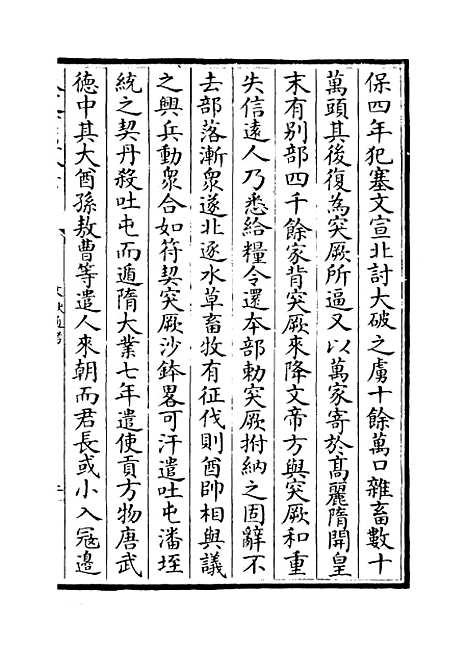 保四年犯塞文宣北討大破之虜十餘萬口雜畜數十
萬頭其後復為突厥所逼又以萬家寄於髙麗隋開皇
末有别部四千餘家背突厥來降文帝方與突厥和重
失信遠人乃悉給糧令還本部勅突厥拊納之固辭不
去部落漸衆遂北逐水草畜牧有征伐則酋帥相與議
之興兵動衆合如符契突厥沙鉢畧可汗遣吐屯潘垤
統之契丹殺吐屯而遁隋大業七年遣使貢方物唐武
徳中其大酋孫敖曹等遣人來朝而君長或小入冦邊